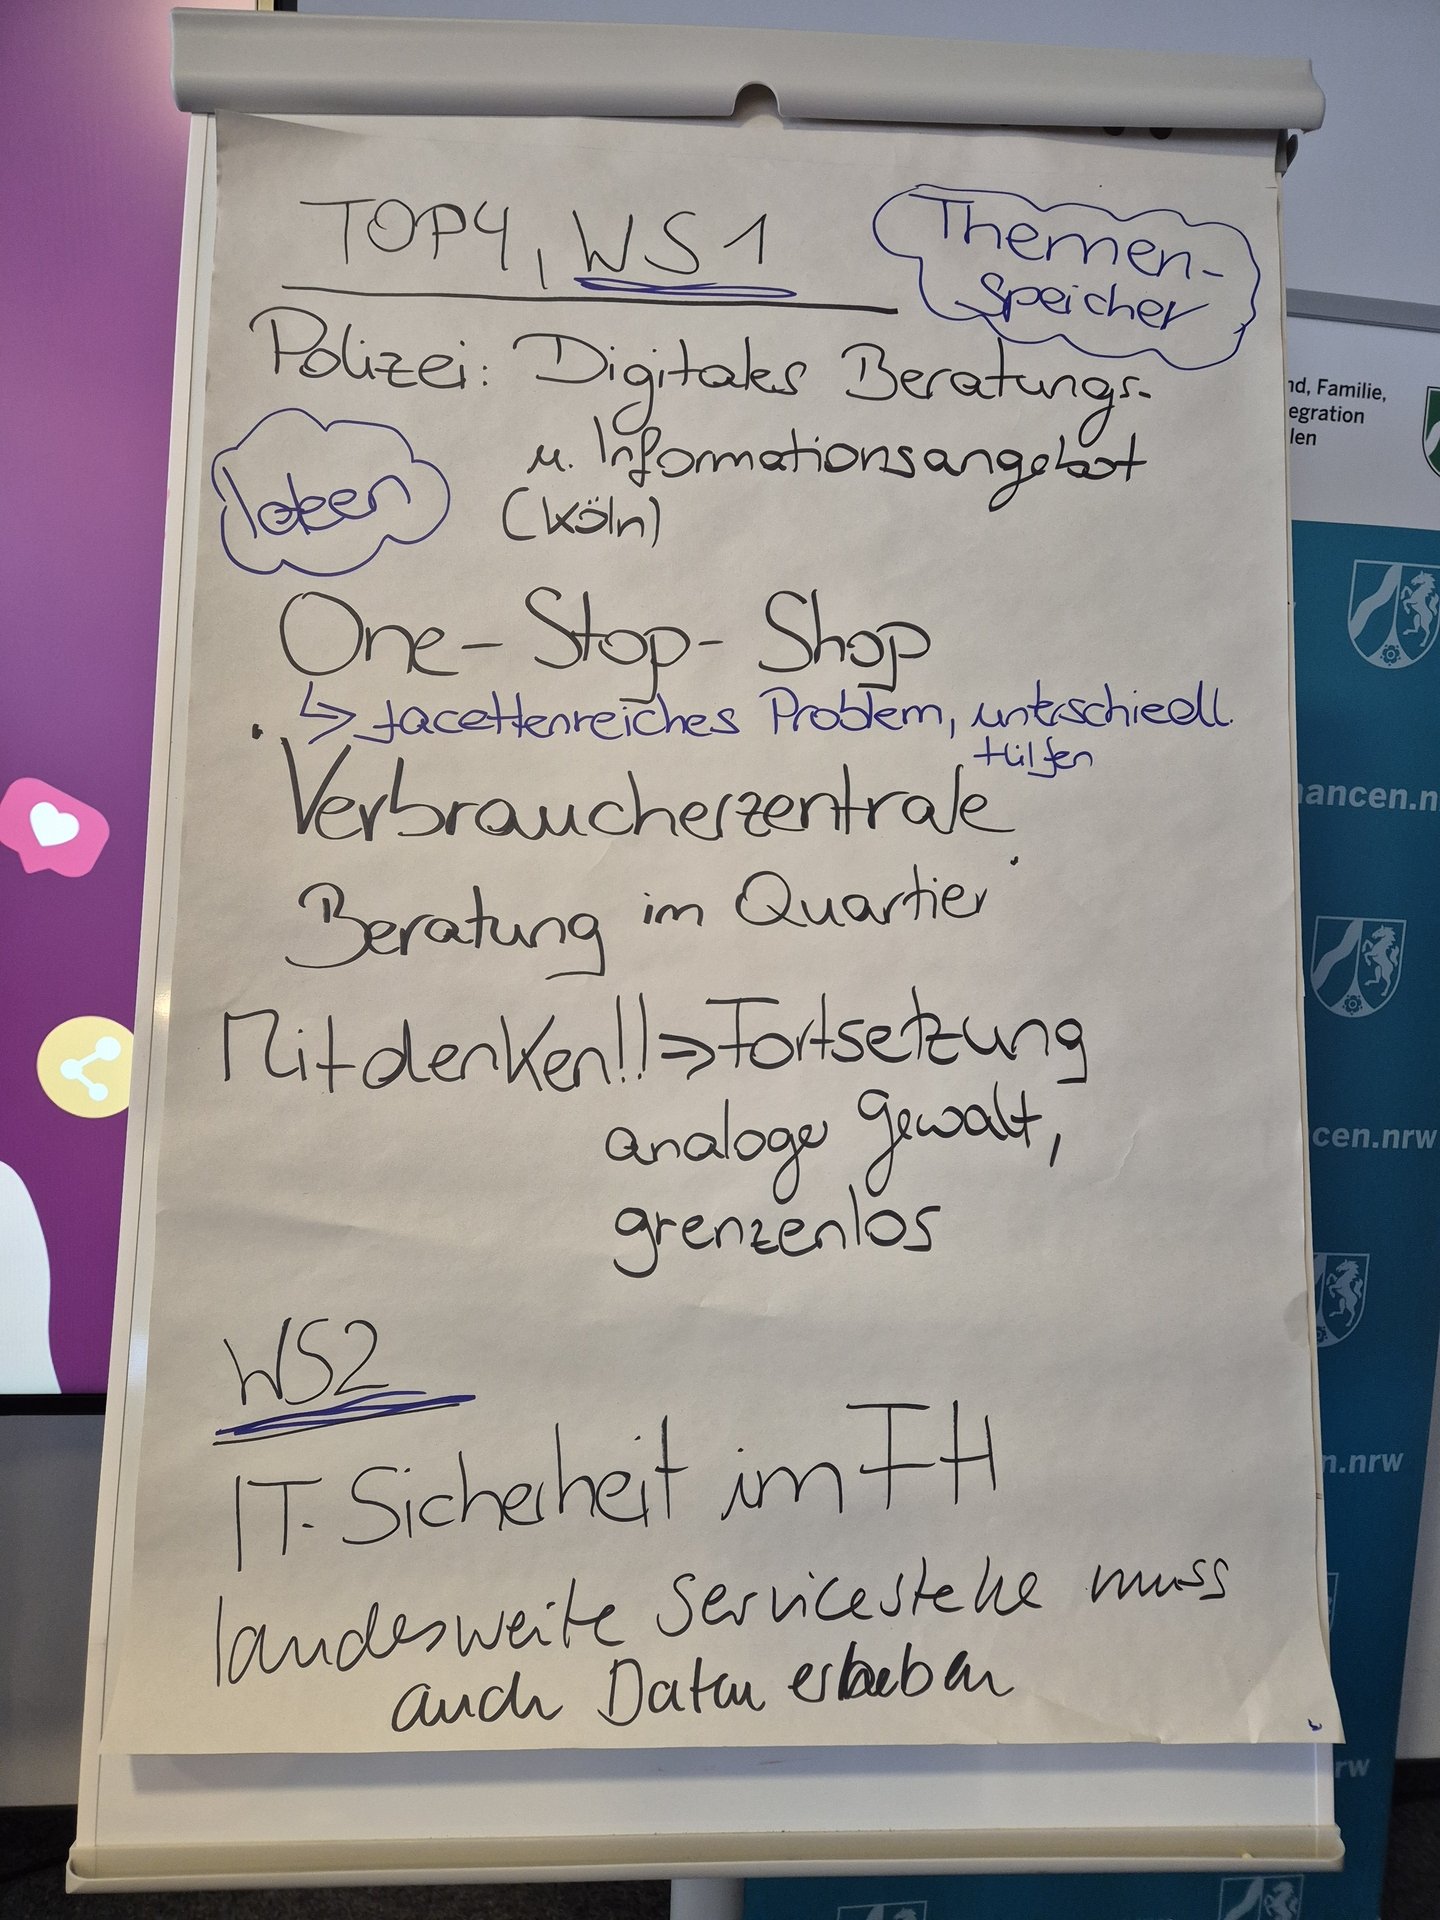 TOP4, WS1
Themen-
Speicher
Polizei: Digitales Beratungs-
u. Informationsangebot
(Köln)
Ideen
One-Stop-Shop
↳ facettenreiches Problem, unterschiedl.
Hilfen
Verbraucherzentrale
Beratung im Quartier
Mitdenken!! => Fortsetzung
analoger Gewalt,
grenzenlos
WS2
IT-Sicherheit im FH
landesweite Servicestelle muss
auch Daten erheben
nd, Familie,
egration
len
hancen.n
cen.nrw
n.nrw
rw